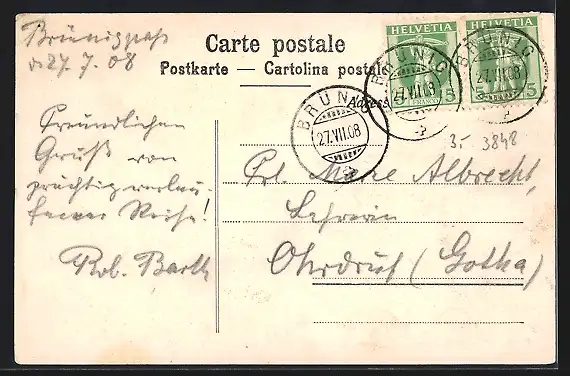 Brünigpass
d. 27. 7. 08
Carte postale
Postkarte — Cartolina postale
HELVETIA
HELVETIA
5
5
5
FRANCO
BRÜNIG
27.VII.08
BRÜNIG
27.VII.08
BRÜNIG
27.VII.08
Adress
3848
Freundlichen
Gruß von
prächtig verlau-
fener Reise!
Rob. Barth
Frl. Marie Albrecht,
Lehrerin
Ohrdruf (Gotha)